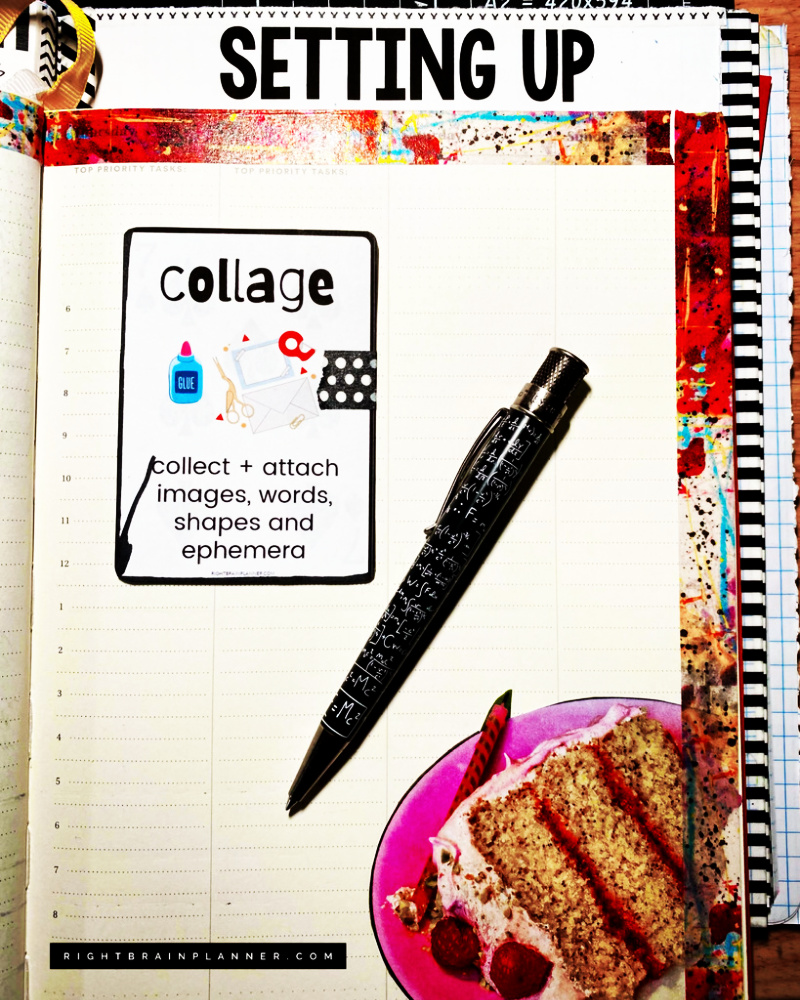 A2 = 420x594
SETTING UP
TOP PRIORITY TASKS:
TOP PRIORITY TASKS:
collage
GLUE
collect + attach
images, words,
shapes and
ephemera
RIGHTBRAINPLANNER.COM
6
7
8
9
10
11
12
1
2
3
4
5
6
7
8
F=
=Mc²
=Mc²
RIGHTBRAINPLANNER.COM